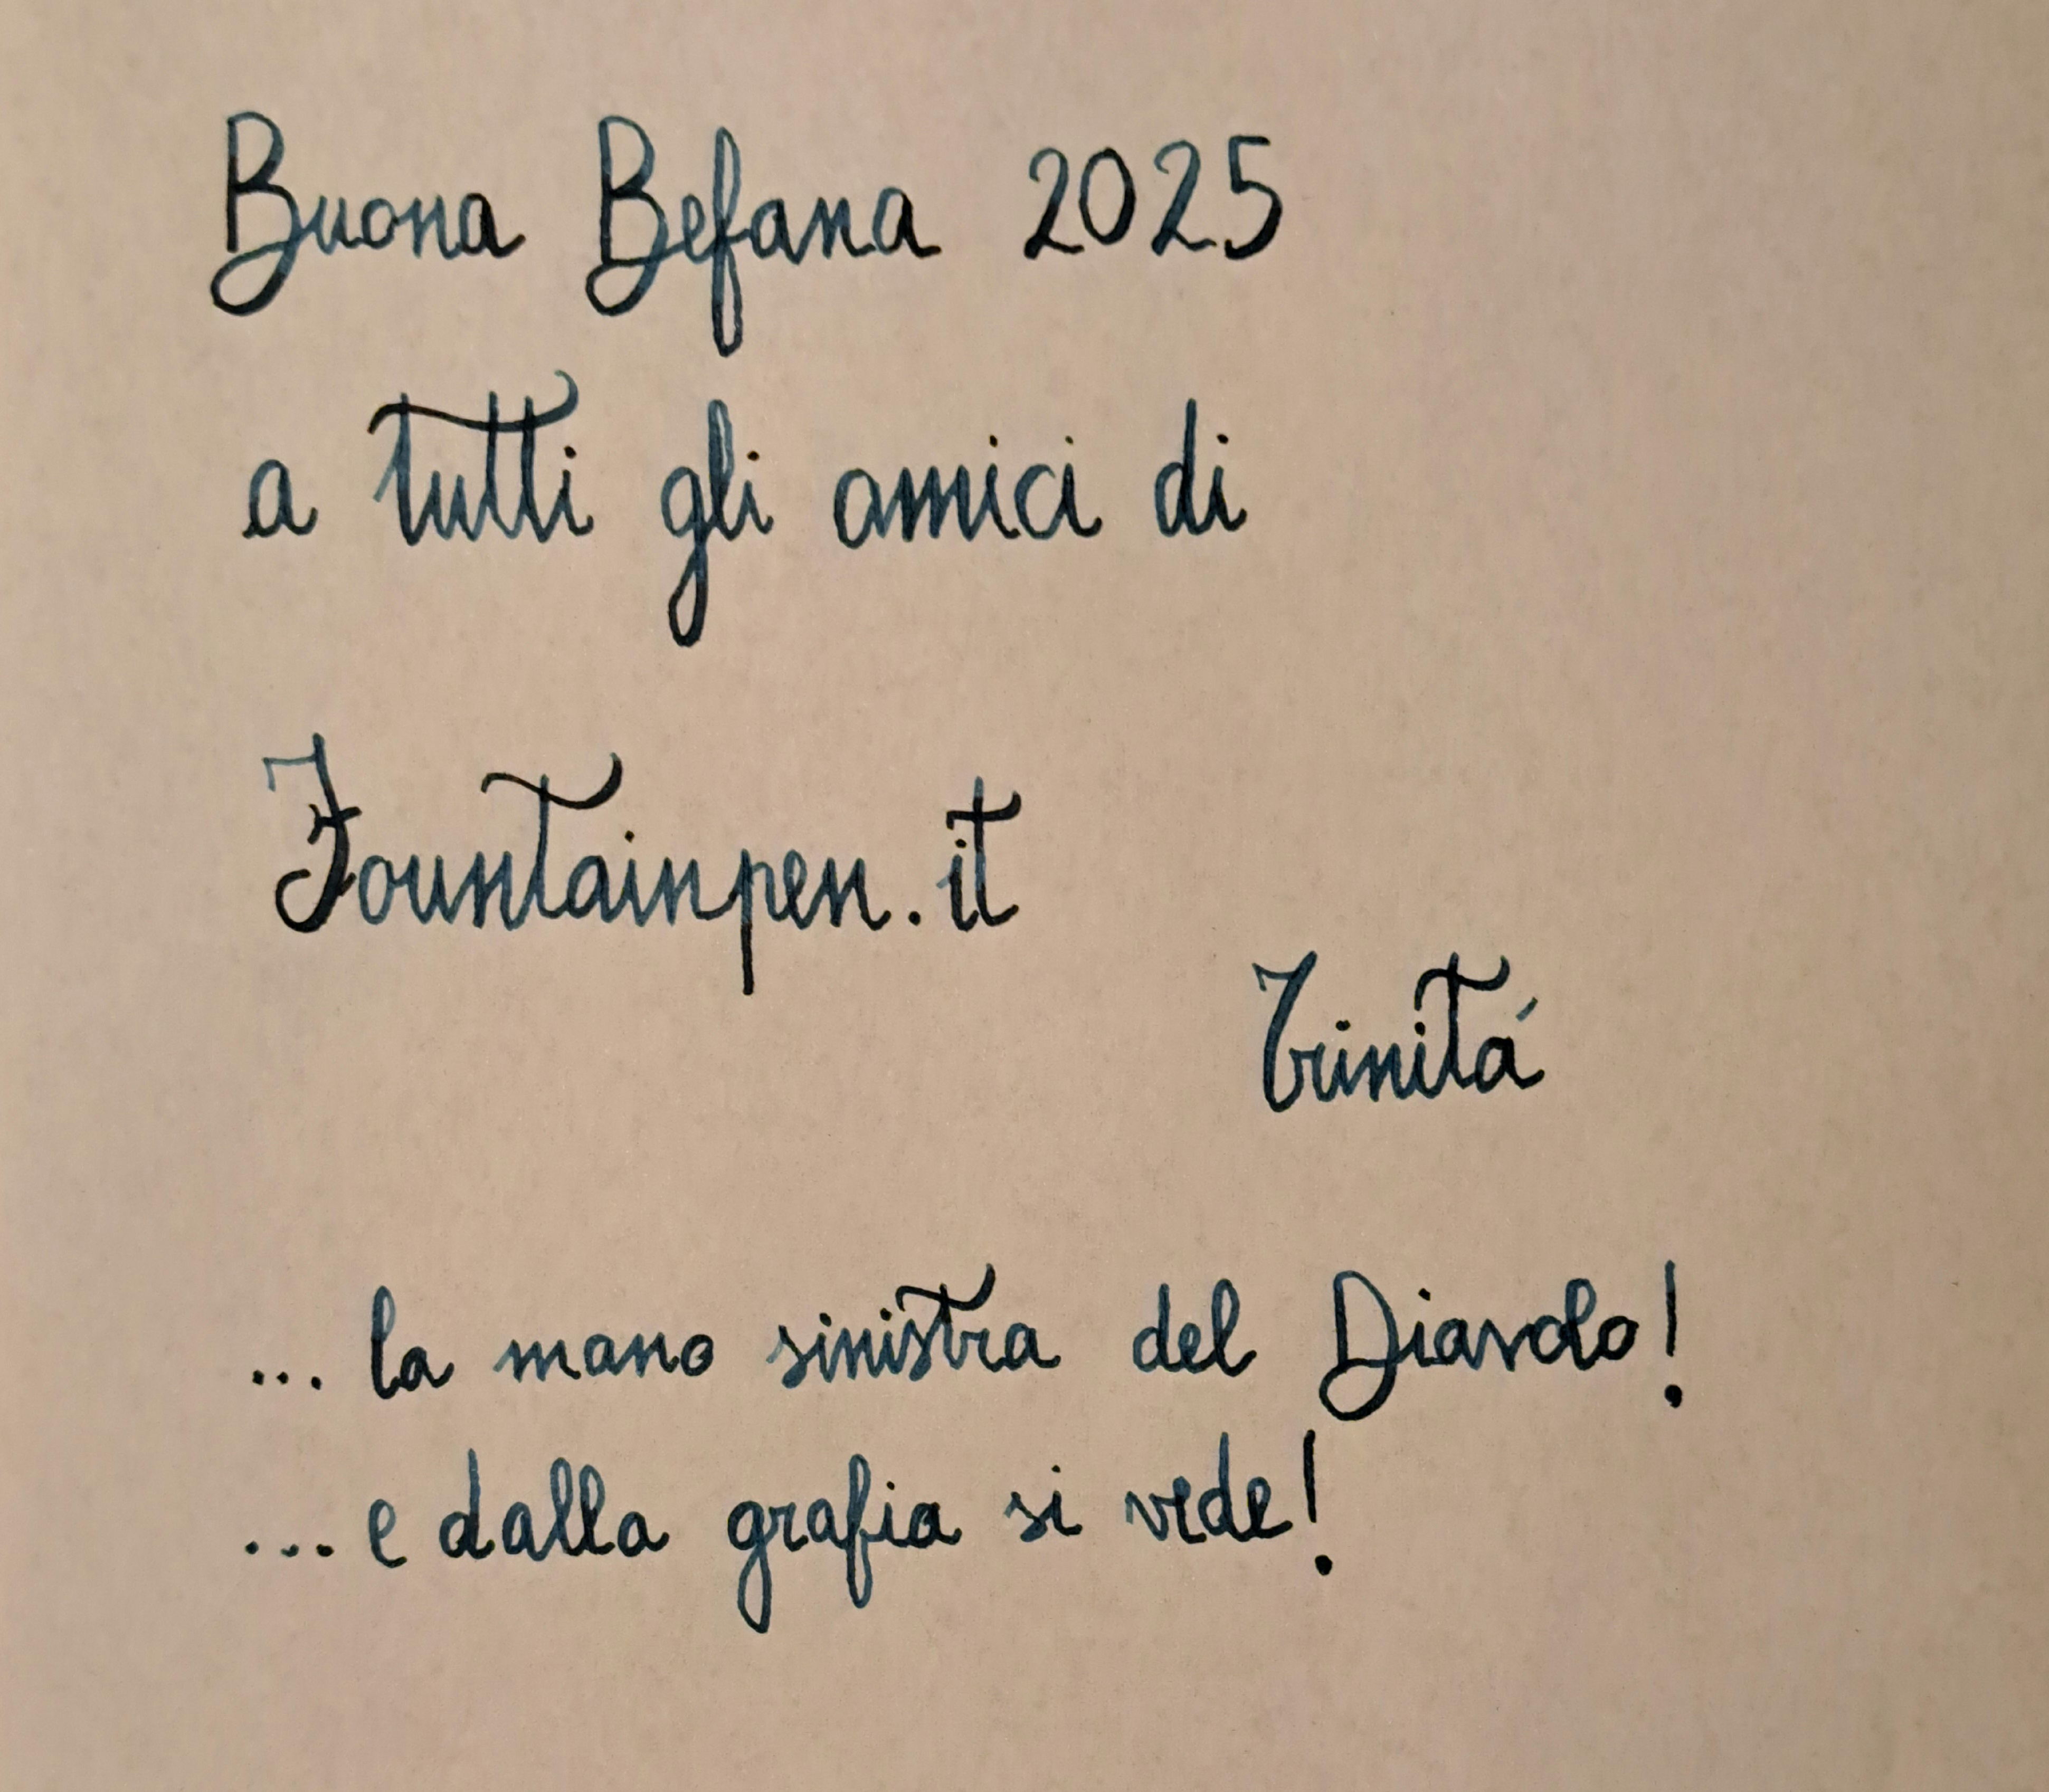 Buona Befana 2025
a tutti gli amici di
Fountainpen.it
Trinitá
... la mano sinistra del Diavolo!
... e dalla grafia si vede!